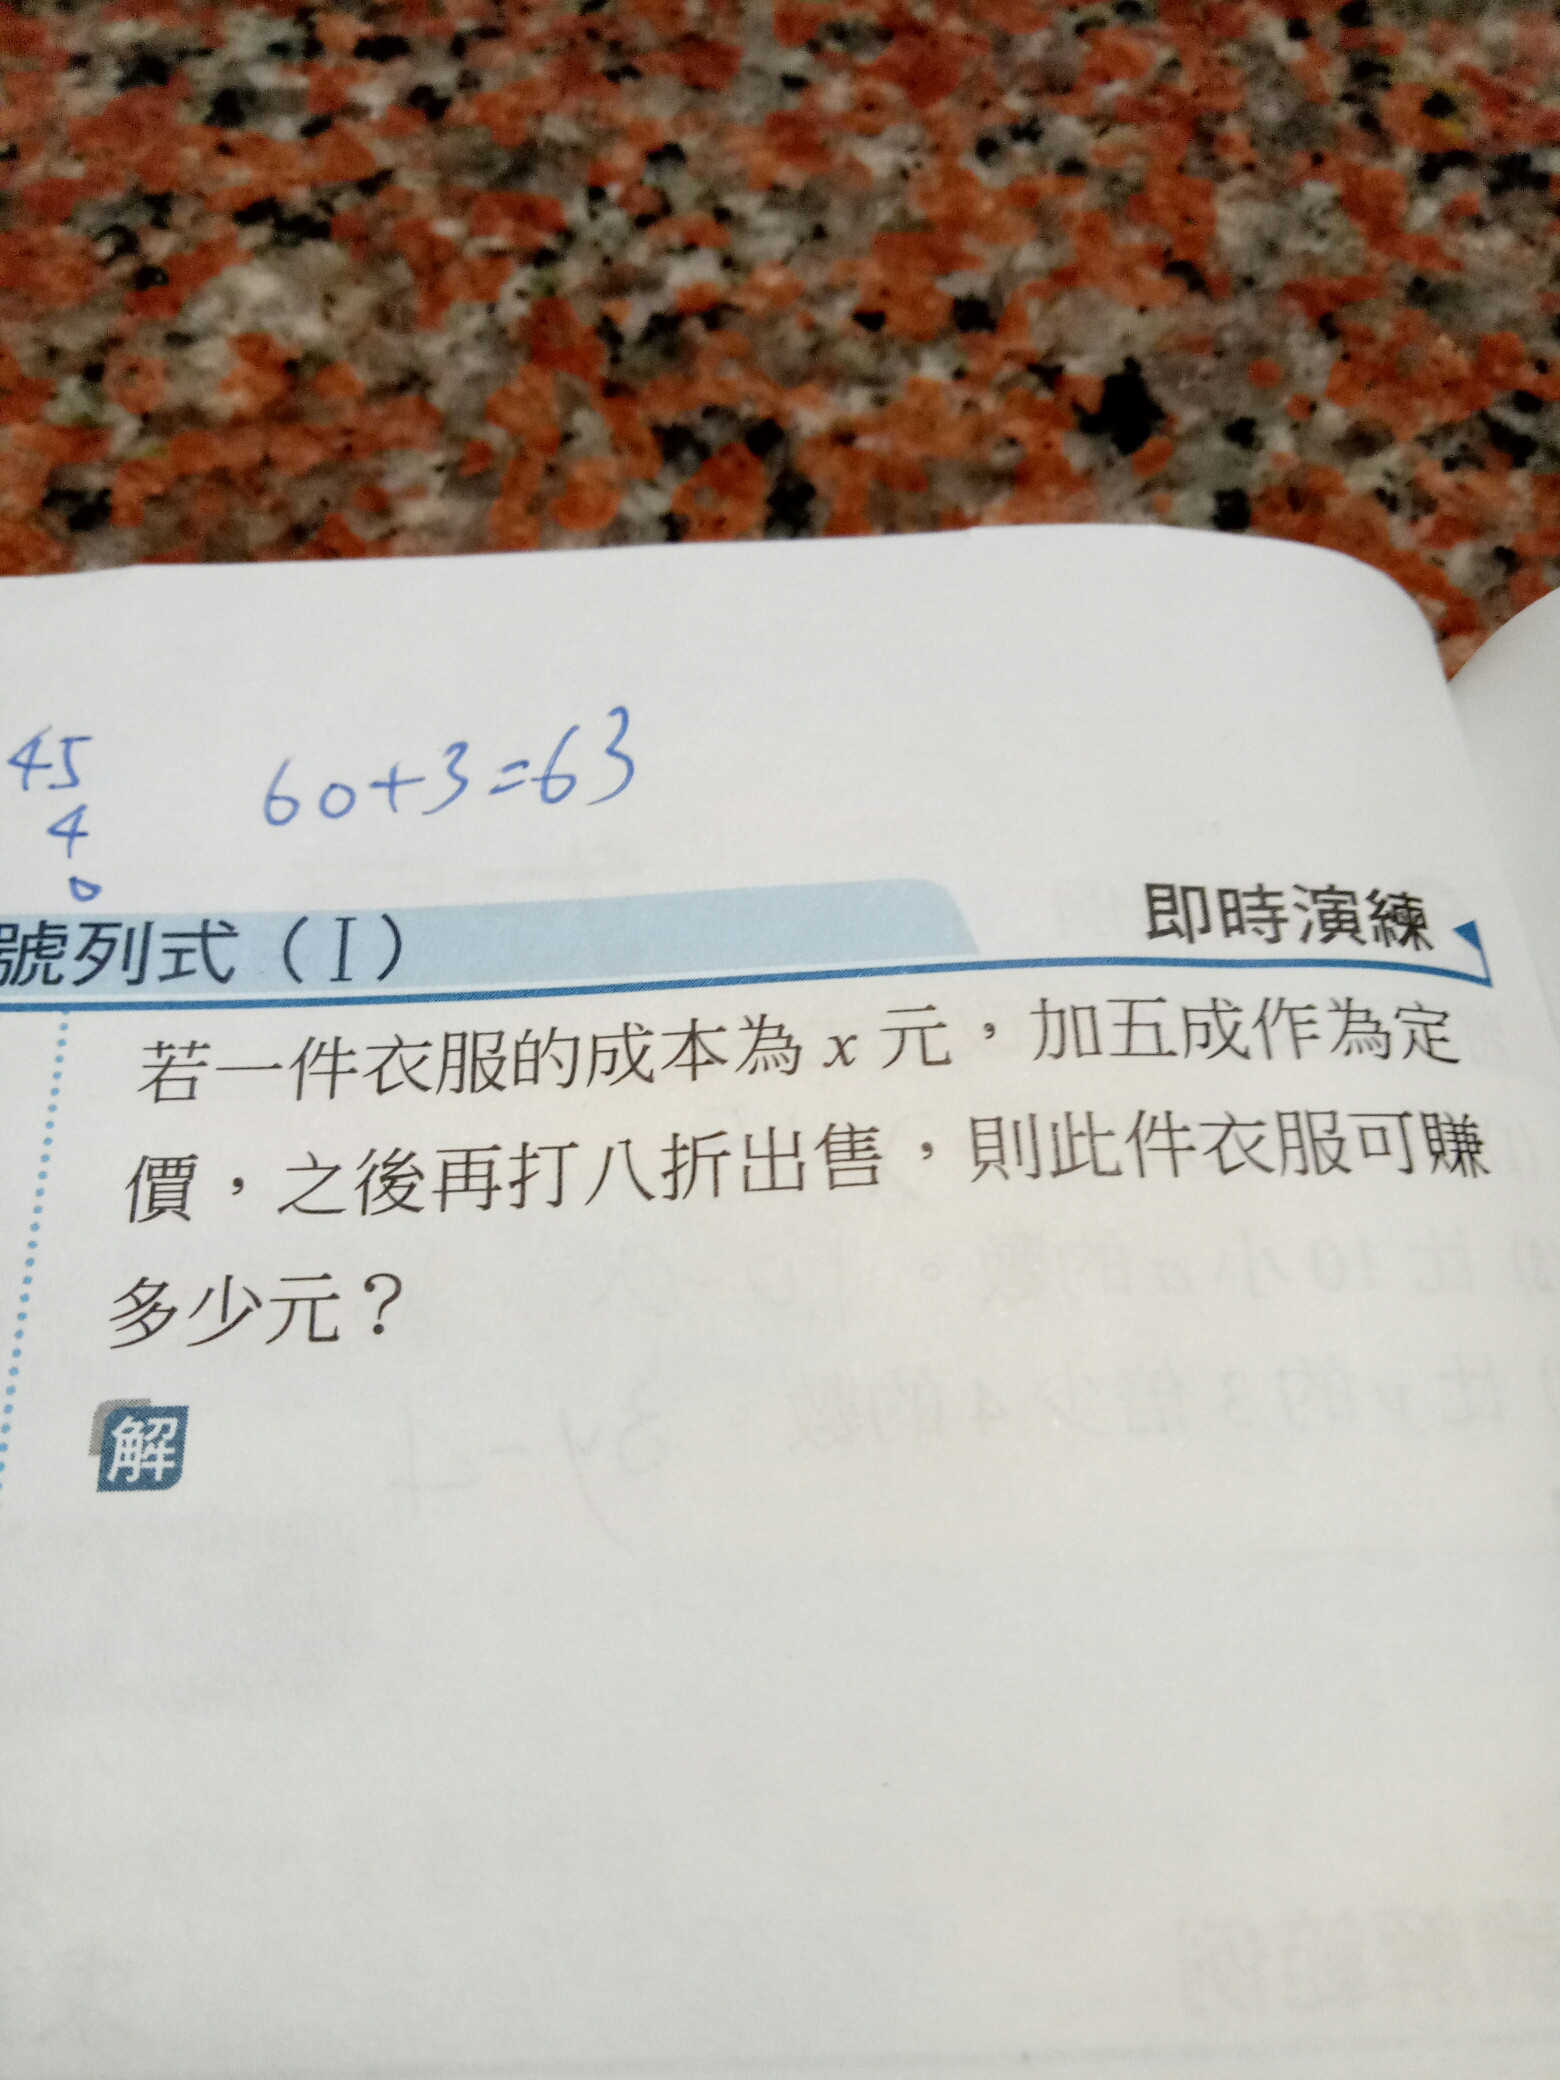 45
60+3=63
4
0
號列式（I）
即時演練
若一件衣服的成本為 x 元，加五成作為定
價，之後再打八折出售，則此件衣服可賺
多少元？
解